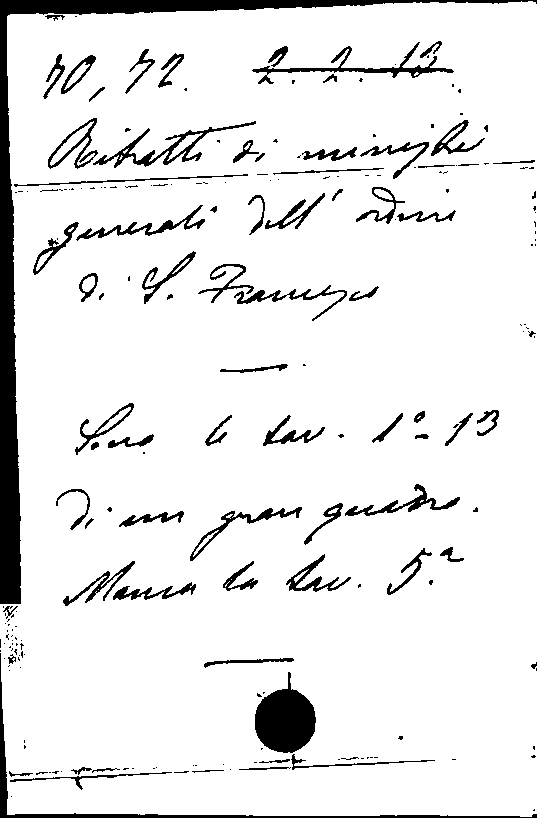 70, 72. 2. 2. 13
Ritratti di ministri
generali dell' ordine
di S. Francesco
Sono le tav. 1ª - 13
di un gran quadro.
Manca la tav. 5.ª